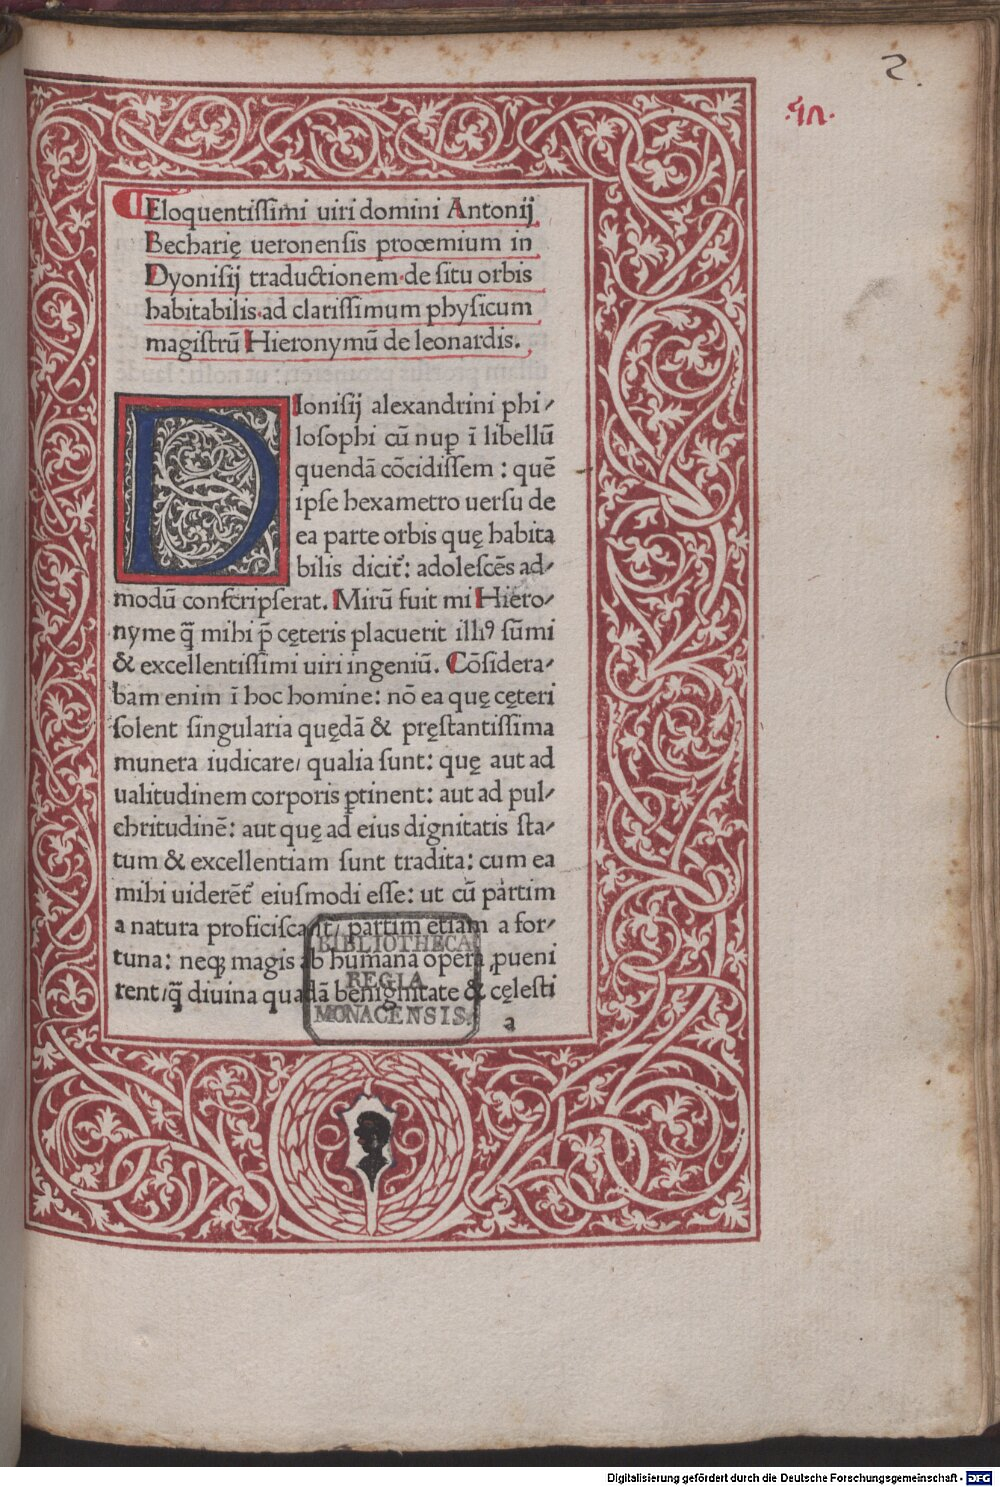 2.
Eloquentiſſimi uiri domini Antonij
Becharię ueronenſis proœmium in
Dyoniſij traductionem de ſitu orbis
habitabilis ad clariſſimum phyſicum
magiſtrū Hieronymū de leonardis.
DIoniſij alexandrini phi⸗
loſophi cū nuꝑ ī libellū
quendā cōcidiſſem : quē
ipſe hexametro uerſu de
ea parte orbis quę habita
bilis dicit᷑: adoleſcēs ad⸗
modū conſcripſerat. Mirū fuit mi Hiero⸗
nyme q̄ mihi p̄ cęteris placuerit illiꝰ ſūmi
& excellentiſſimi uiri ingeniū. Cōſidera⸗
bam enim ī hoc homine: nō ea quę cęteri
ſolent ſingularia quędā & pręſtantiſſima
munera iudicare/ qualia ſunt: quę aut ad
ualitudinem corporis ꝑtinent: aut ad pul⸗
chritudinē: aut quę ad eius dignitatis ſta⸗
tum & excellentiam ſunt tradita: cum ea
mihi uiderēt᷑ eiuſmodi eſſe: ut cū partim
a natura proficiſcant/ partim etiam a for⸗
tuna: neqꝫ magis ab humana opera ꝓueni
rent/q̄ diuina quadā benignitate & cęleſti
a
BIBLIOTHECA
REGIA
MONACENSIS.
Digitalisierung gefördert durch die Deutsche Forschungsgemeinschaft - DFG